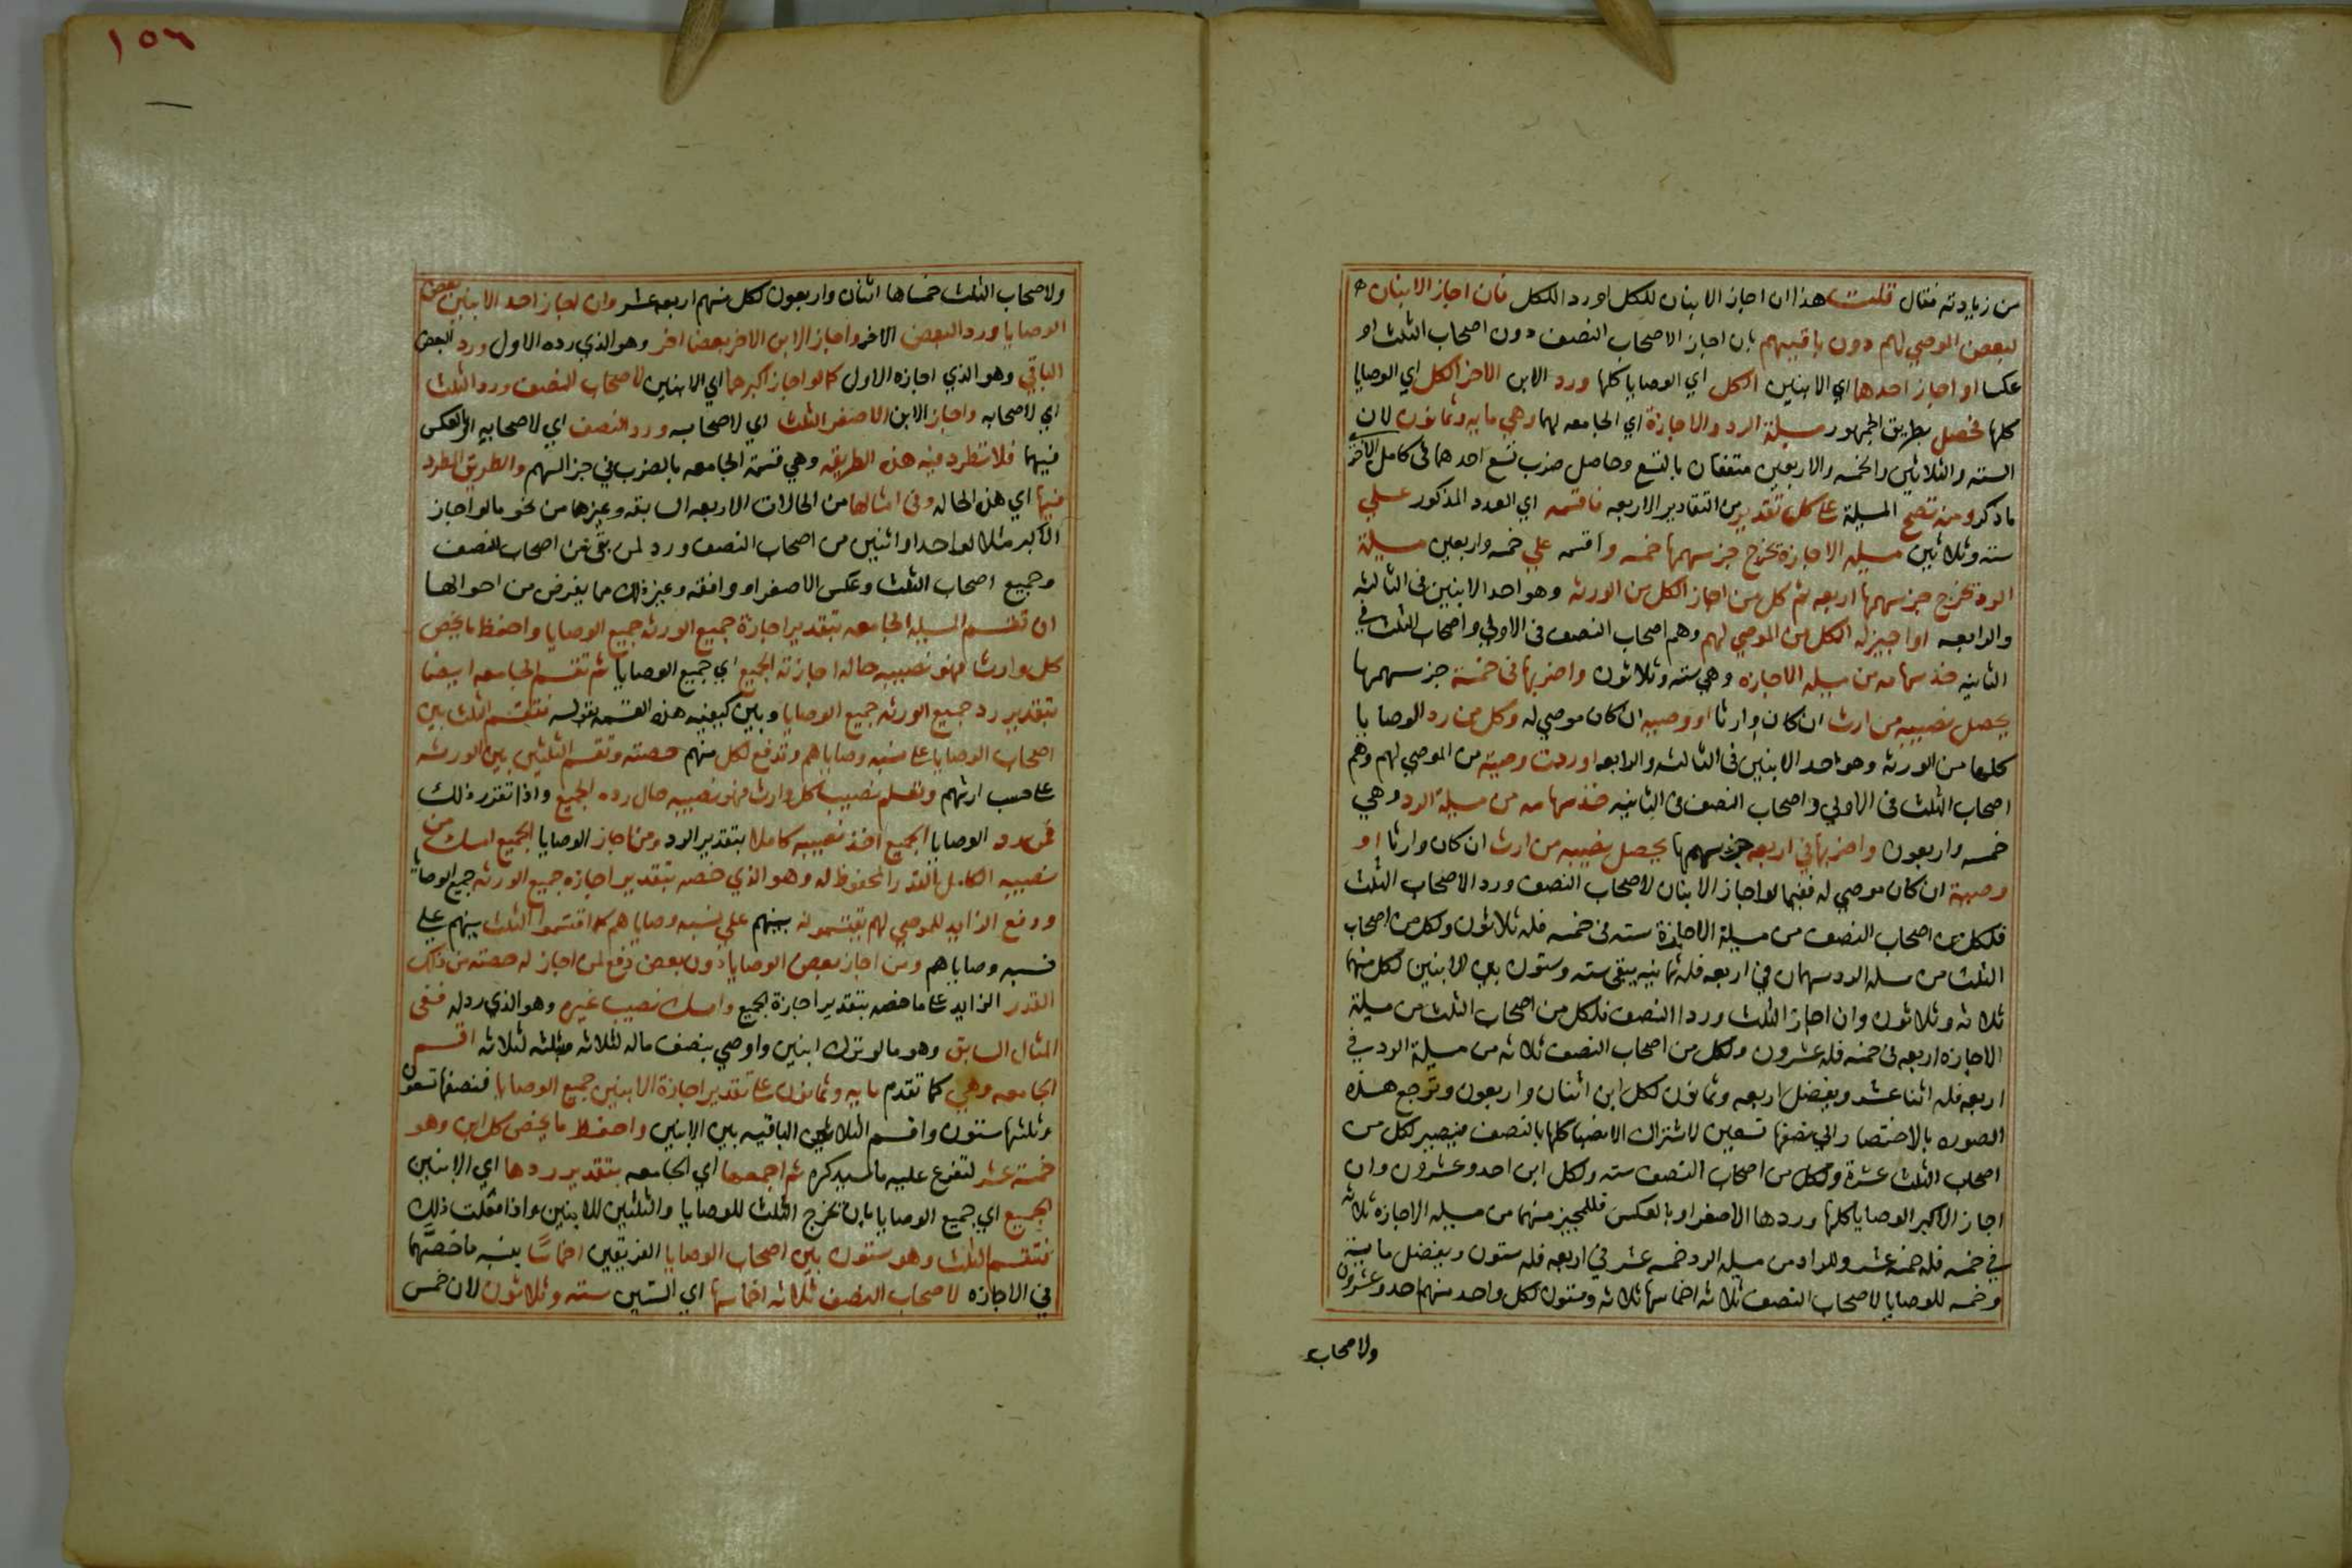 من زيادته فقال قلت هذا ان اجاز الابنان للكل او رد الكل فان اجاز الابنان
لبعض الموصي لهم دون باقيهم بان اجاز الاصحاب النصف دون اصحاب الثلث او
عكسا او اجاز احدهما اي الابنين الكل اي الوصايا كلها ورد الابن الاخر الكل اي الوصايا
كلها فحصل بطريق الجمهور مسيلة الرد والاجازة اي الجامعه لهما وهي مايه وثمانون لان
السته والثلاثين والخمسه والاربعين متفقان بالتسع وحاصل ضرب تسع احدهما في كامل الاخر
ما ذكر ومنه تصح المسيلة على كل تقدير من التقادير الاربعه فاقسمه اي العدد المذكور علي
سته وثلاثين مسيله الاجازة تخرج جز سهمها خمسه واقسمه علي خمسه واربعين مسيلة
الرد تخرج جز سهمها اربعه ثم كل من اجاز الكل من الورثه وهو احد الابنين في الثالثه
والرابعه او اجيز له الكل من الموصي لهم وهم اصحاب النصف في الاولي واصحاب الثلث في
الثانيه خذ سهامه من مسيله الاجازه وهي سته وثلاثون واضربها في خمسة جز سهمها
يحصل نصيبه من ارث ان كان وارثا او وصيه ان كان موصي له وكل من رد الوصايا
كلها من الورثه وهو احد الابنين في الثالثه والرابعه او ردت وصيته من الموصي لهم وهم
اصحاب الثلث في الاولي واصحاب النصف في الثانيه خذ سهامه من مسيلة الرد وهي
خمسه واربعون واضربها في اربعه جز سهمها يحصل نصيبه من ارث ان كان وارثا او
وصية ان كان موصي له ففيما لو اجاز الابنان لاصحاب النصف ورد الاصحاب الثلث
فلكل من اصحاب النصف من مسيلة الاجازة سته في خمسه فله ثلاثون ولكل من اصحاب
الثلث من مسله الرد سهمان في اربعه فله ثمانيه يبقى سته وستون بين الابنين لكل منهما
ثلاثه وثلاثون وان اجاز الثلث وردا النصف فلكل من اصحاب الثلث من مسيلة
الاجازه اربعه في خمسه فله عشرون ولكل من اصحاب النصف ثلاثه من مسيلة الرد في
اربعه فله اثنا عشر ويفضل اربعه وثمانون لكل ابن اثنان واربعون وترجع هذه
الصوره بالاختصار الي نصفها تسعين لاشتراك الانصبا كلها بالنصف فيصير لكل من
اصحاب الثلث عشرة ولكل من اصحاب النصف سته ولكل ابن احد وعشرون وان
اجاز الاكبر الوصايا كلها وردها الاصغر او بالعكس فللمجيز منهما من مسيله الاجازه ثلاثه
في خمسه فله خمسة عشر وللراد من مسيله الرد خمسه عشر في اربعه فله ستون ويفضل مايه
وخمسه للوصايا لاصحاب النصف ثلاثه اخماسها ثلاثه وستون لكل واحد منهم احد وعشرون
ولاصحاب
١٥٦
ولاصحاب الثلث خمساها اثنان واربعون لكل منهم اربعه عشر وان اجاز احد الابنين بعض
الوصايا ورد البعض الاخر واجاز الابن الاخر بعضا اخر وهو الذي رده الاول ورد البعض
الباقي وهو الذي اجازه الاول كما لو اجاز اكبرهما اي الابنين لاصحاب النصف ورد الثلث
اي لاصحابه واجاز الابن الاصغر الثلث اي لاصحابه ورد النصف اي لاصحابه او بالعكس
فيهما فلا تطرد فيه هذه الطريقه وهي قسمة الجامعه بالضرب في جز السهم والطريق المطرد
فيها اي هذه الحاله وفي امثالها من الحالات الاربعه السابقه وغيرها من نحو ما لو اجاز
الاكبر مثلا لواحد او اثنين من اصحاب النصف ورد لمن بقي من اصحاب النصف
وجميع اصحاب الثلث وعكس الاصغر او وافقه وغير ذلك مما يفرض من احوالها
ان تقسم المسيله الجامعه بتقدير اجازة جميع الورثه جميع الوصايا واحفظ ما يخص
كل وارث فهو نصيبه حاله اجازته الجميع اي جميع الوصايا ثم تقسم الجامعه ايضا
بتقدير رد جميع الورثه جميع الوصايا وبين كيفيه هذه القسمه بقوله فتقسم الثلث بين
اصحاب الوصايا على نسبه وصاياهم وتدفع لكل منهم حصته وتقسم الثلثين بين الورثه
على حسب ارثهم وتعلم نصيب كل وارث فهو نصيبه حال رده الجميع واذا تقرر ذلك
فمن رد الوصايا الجميع اخذ نصيبه كاملا بتقدير الرد ومن اجاز الوصايا الجميع امسك من
نصيبه الكامل القدر المحفوظ له وهو الذي خصه بتقدير اجازه جميع الورثه جميع الوصايا
ودفع الزايد للموصي لهم يقتسمونه بينهم علي نسبه وصاياهم كما اقتسموا الثلث بينهم علي
نسبه وصاياهم ومن اجاز بعض الوصايا دون بعض دفع لمن اجاز له حصته من ذلك
القدر الزايد على ما خصه بتقدير اجازة الجميع وامسك نصيب غيره وهو الذي رد له ففي
المثال السابق وهو ما لو ترك ابنين واوصي بنصف ماله لثلاثه وبثلثه لثلاثه اقسم
الجامعه وهي كما تقدم مايه وثمانون على تقدير اجازة الابنين جميع الوصايا فنصفها تسعون
وثلثها ستون واقسم الثلاثين الباقيه بين الابنين واحفظ ما يخص كل ابن وهو
خمسة عشر لتفرع عليه ما سيذكره ثم اجمعها اي الجامعه بتقدير ردها اي الابنين
الجميع اي جميع الوصايا بان تخرج الثلث للوصايا والثلثين للابنين واذا فعلت ذلك
فتقسم الثلث وهو ستون بين اصحاب الوصايا الفريقين اخماسًا بنسبه ما خصهما
في الاجازه لاصحاب النصف ثلاثه اخماسها اي الستين سته وثلاثون لان خمس